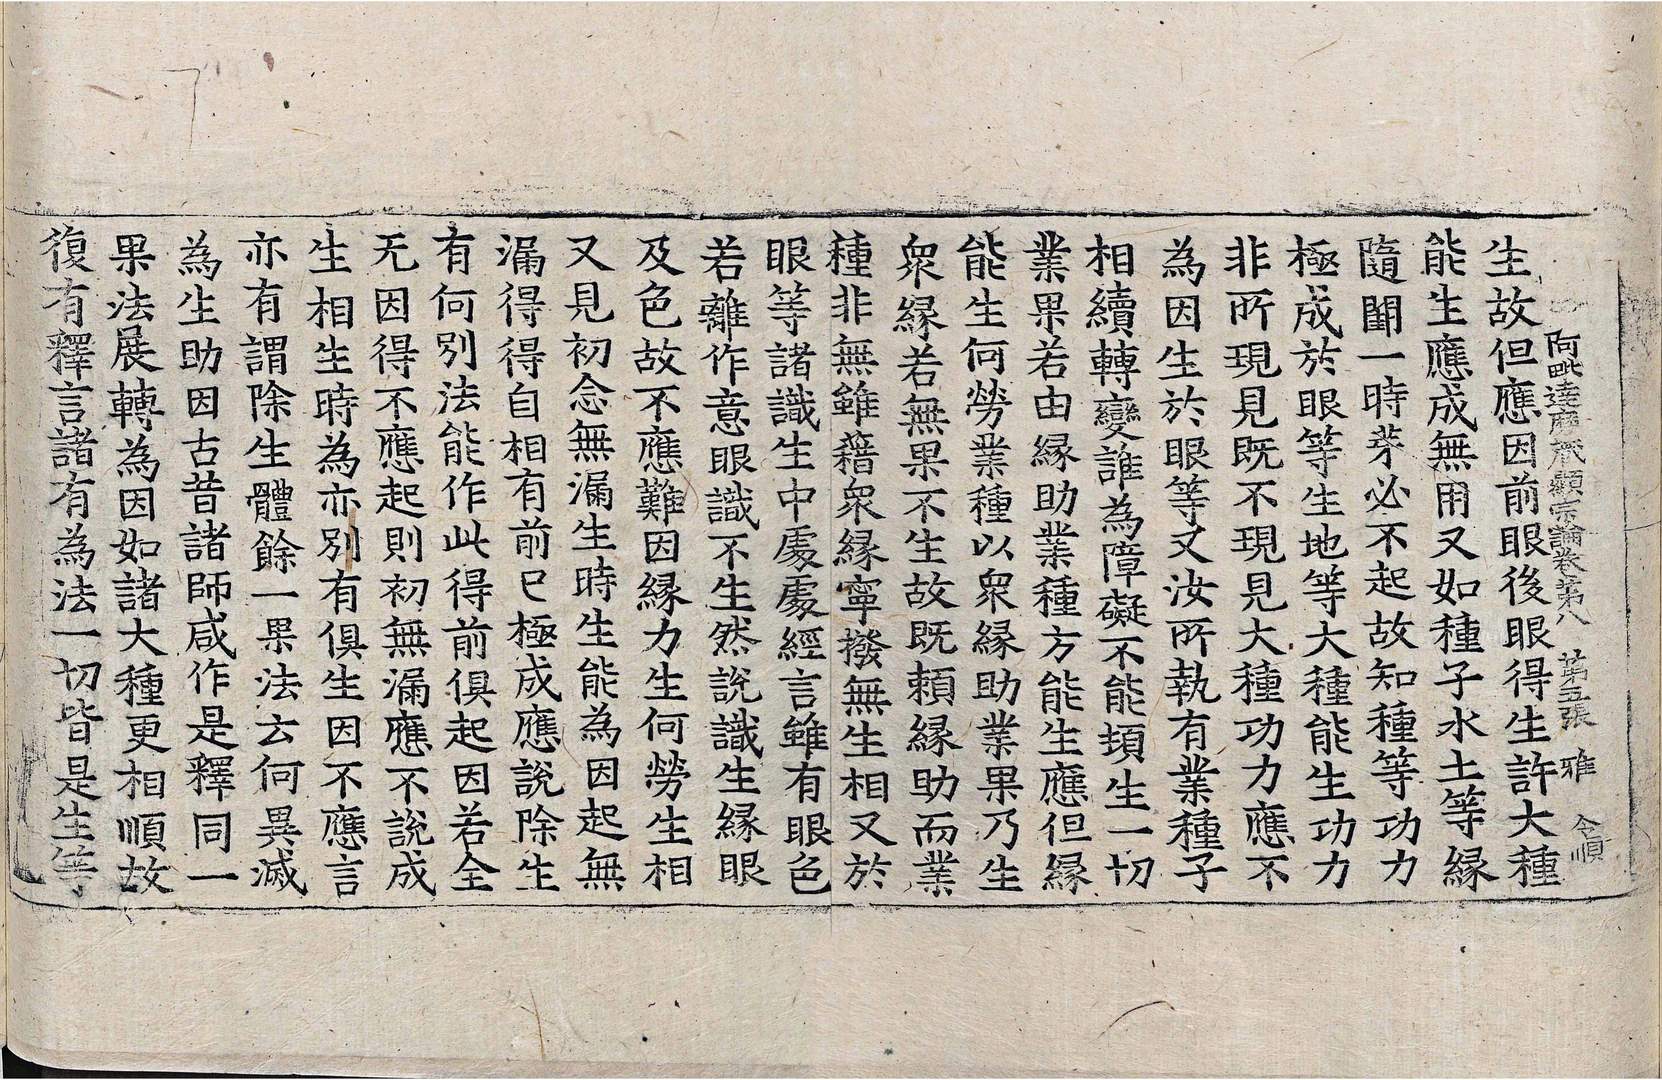 阿毗達磨藏顯宗論卷第八 第五張 雅 令順
生故但應因前眼後眼得生許大種
能生應成無用又如種子水土等縁
隨闕一時芽必不起故知種等功力
極成於眼等生地等大種能生功力
非所現見既不現見大種功力應不
為因生於眼等又汝所執有業種子
相續轉變誰為障礙不能頓生一切
業果若由縁助業種方能生應但縁
能生何勞業種以衆縁助業果乃生
衆縁若無果不生故既頼縁助而業
種非無雖藉衆縁寧撥無生相又於
眼等諸識生中處處經言雖有眼色
若離作意眼識不生然説識生縁眼
及色故不應難因縁力生何勞生相
又見初念無漏生時生能為因起無
漏得得自相有前已極成應說除生
有何別法能作此得前俱起因若全
无因得不應起則初無漏應不說成
生相生時為亦別有俱生因不應言
亦有謂除生體餘一果法云何異滅
為生助因古昔諸師咸作是釋同一
果法展轉為因如諸大種更相順故
復有釋言諸有為法一切皆是生等